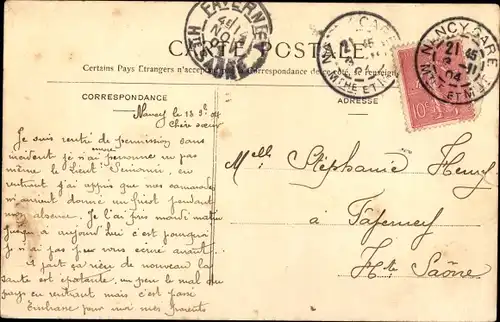 FAVERNEY
Hte SAÔNE
NANCY GARE
MTHE ET MLLE
NANCY-GARE
21 45
-11
04
MTHE ET MLLE
CARTE POSTALE
Certains Pays Etrangers n'acceptent pas la correspondance de ce côté, se renseigner
CORRESPONDANCE
ADRESSE
10c
Nancy le 13 9bre 04
Chère sœur
Je suis rentré de permission sans
incident je n'ai même personne vu pas
même le Lieut. en
rentrant j'ai appris que nos camarades
m'avaient donné pendant
mon absence. Je l'ai fini mardi matin
jusqu'à aujourd'hui c'est pourquoi
je n'ai pas pu vous écrire avant.
A part ça rien de nouveau la
santé est épatante, un peu le mal du
pays en rentrant mais c'est passé
Embrasse pour moi mes parents
Melle Stéphanie Henry
à Faverney
Hte Saône